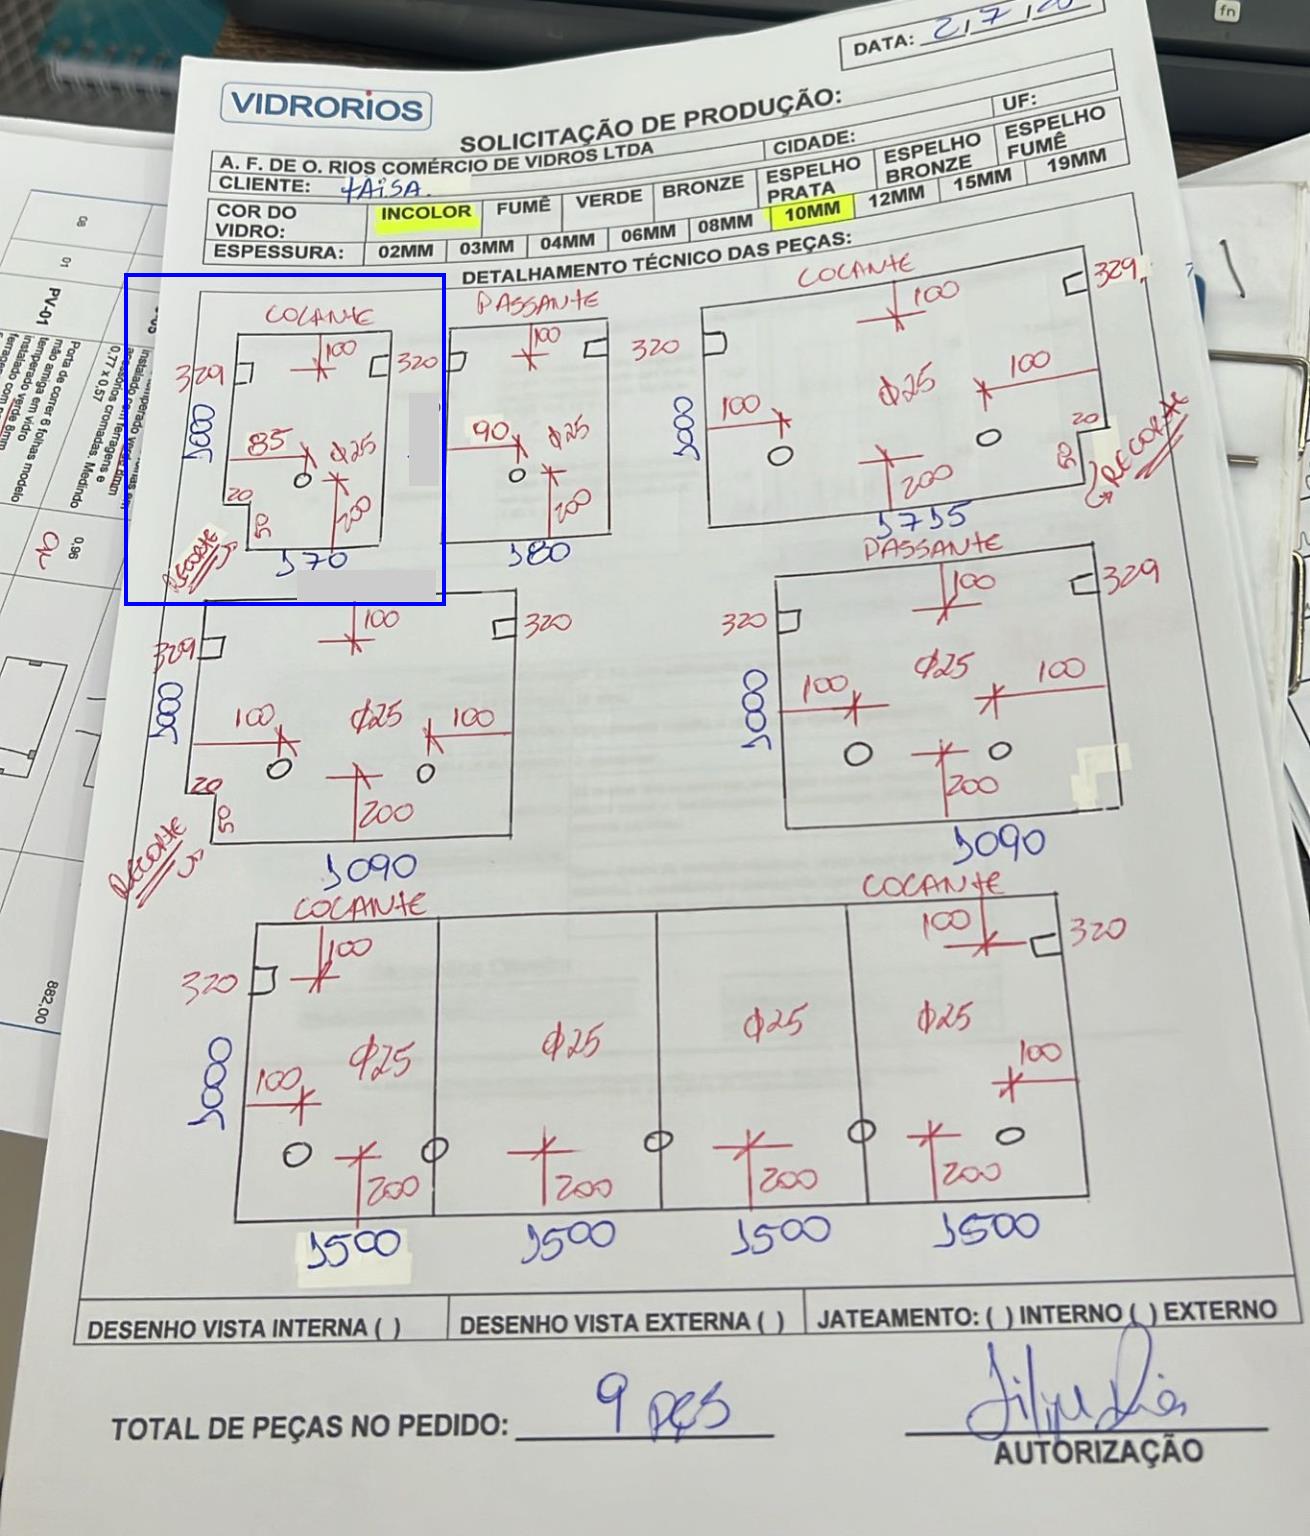 fn
DATA: 2/7/20
VIDRORIOS
SOLICITAÇÃO DE PRODUÇÃO:
A. F. DE O. RIOS COMÉRCIO DE VIDROS LTDA CIDADE: UF:
CLIENTE: tAiSA.
COR DO VIDRO: INCOLOR FUMÊ VERDE BRONZE ESPELHO PRATA ESPELHO BRONZE ESPELHO FUMÊ
ESPESSURA: 02MM 03MM 04MM 06MM 08MM 10MM 12MM 15MM 19MM
DETALHAMENTO TÉCNICO DAS PEÇAS:
COLANTE PASSANTE COLANTE
329 100 320 100 320 100 329
1000 85 Φ25 90 Φ25 1000 100 Φ25 100
20 50 200 200 200 20 50
RECORTE 170 180 1715 RECORTE
PASSANTE
329 100 320 320 100 329
1000 100 Φ25 100 1000 100 Φ25 100
20 50 200 200
RECORTE 1090 1090
COLANTE COLANTE
320 100 100 320
1000 100 Φ25 Φ25 Φ25 Φ25 100
200 200 200 200
1500 1500 1500 1500
DESENHO VISTA INTERNA ( ) DESENHO VISTA EXTERNA ( ) JATEAMENTO: ( ) INTERNO ( ) EXTERNO
TOTAL DE PEÇAS NO PEDIDO: 9 PÇS
AUTORIZAÇÃO
08
01
PV-01
Porta de correr 6 folhas modelo
mão amiga em vidro
temperado verde 8mm
0,77 x 0,57
0,96
882,00